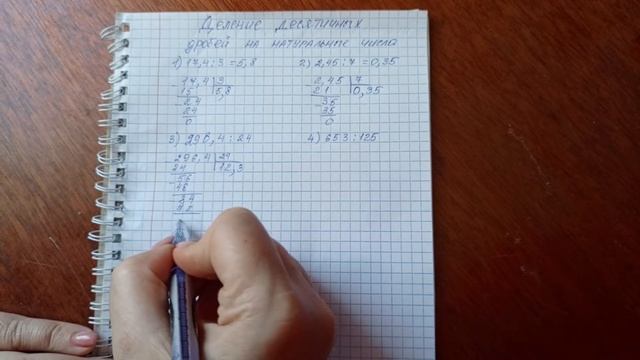 Деление десятичных
дробей на натуральные числа
1) 17,4 : 3 = 5,8
2) 2,45 : 7 = 0,35
17,4 3
15 5,8
24
24
0
2,45 7
21 0,35
35
35
0
3) 296,4 : 24
4) 653 : 125
296,4 24
24 12,3
56
48
84
72